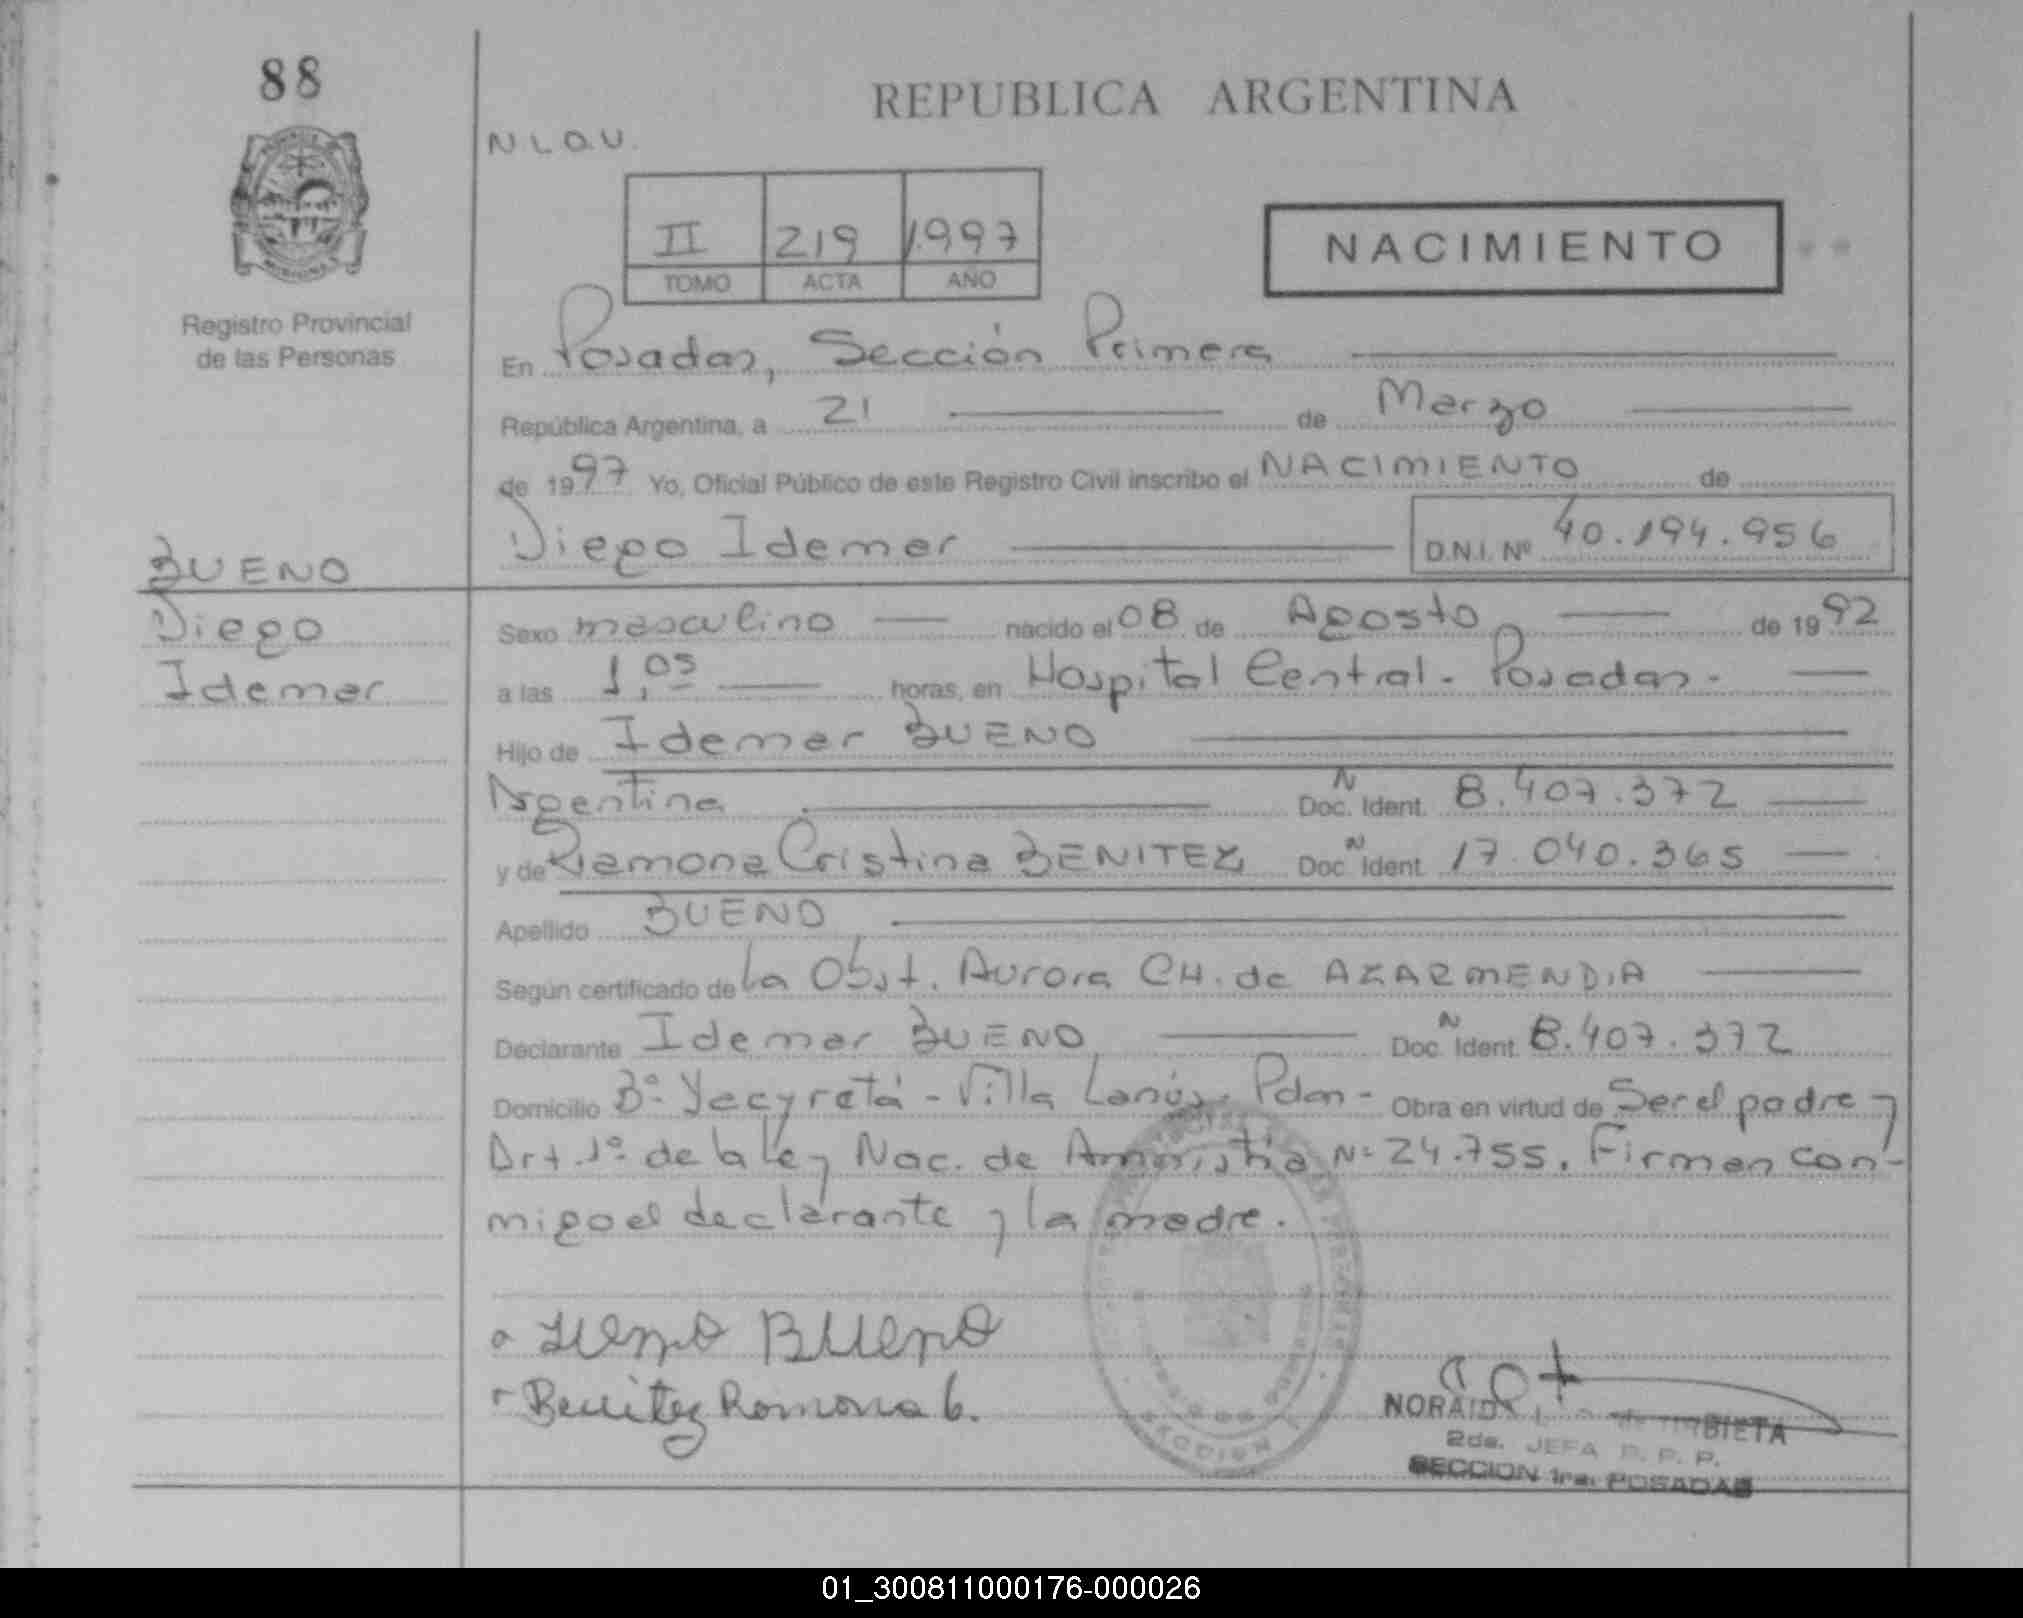 88
REPUBLICA ARGENTINA
N L Q U.
II 219 1997
TOMO ACTA AÑO
NACIMIENTO
Registro Provincial
de las Personas
En Posadas, Sección Primera
República Argentina, a 21 de Marzo
de 1997 Yo, Oficial Público de este Registro Civil inscribo el NACIMIENTO de
Diego Idemar D.N.I. Nº 40.194.956
BUENO
Diego
Idemar
Sexo masculino nacido el 08 de Agosto de 1992
a las 1,05 horas, en Hospital Central - Posadas -
Hijo de Idemar BUENO
Argentina N Doc. Ident. 8.407.372
y de Ramona Cristina BENITEZ N Doc. Ident. 17.040.365
Apellido BUENO
Según certificado de la Obst. Aurora CH. de AZARMENDIA
Declarante Idemar BUENO N Doc. Ident. 8.407.372
Domicilio Bº Yacyretá - Villa Lanús - Pdas - Obra en virtud de Ser el padre y
Art. 1º de la Ley Nac. de Amnistía Nº 24.755. Firman con-
migo el declarante y la madre.
BUENO
Benitez Ramona C.
NORAID BIETA
2da. JEFA R. P. P.
SECCION 1ra. POSADAS
SECCION 1
01_300811000176-000026